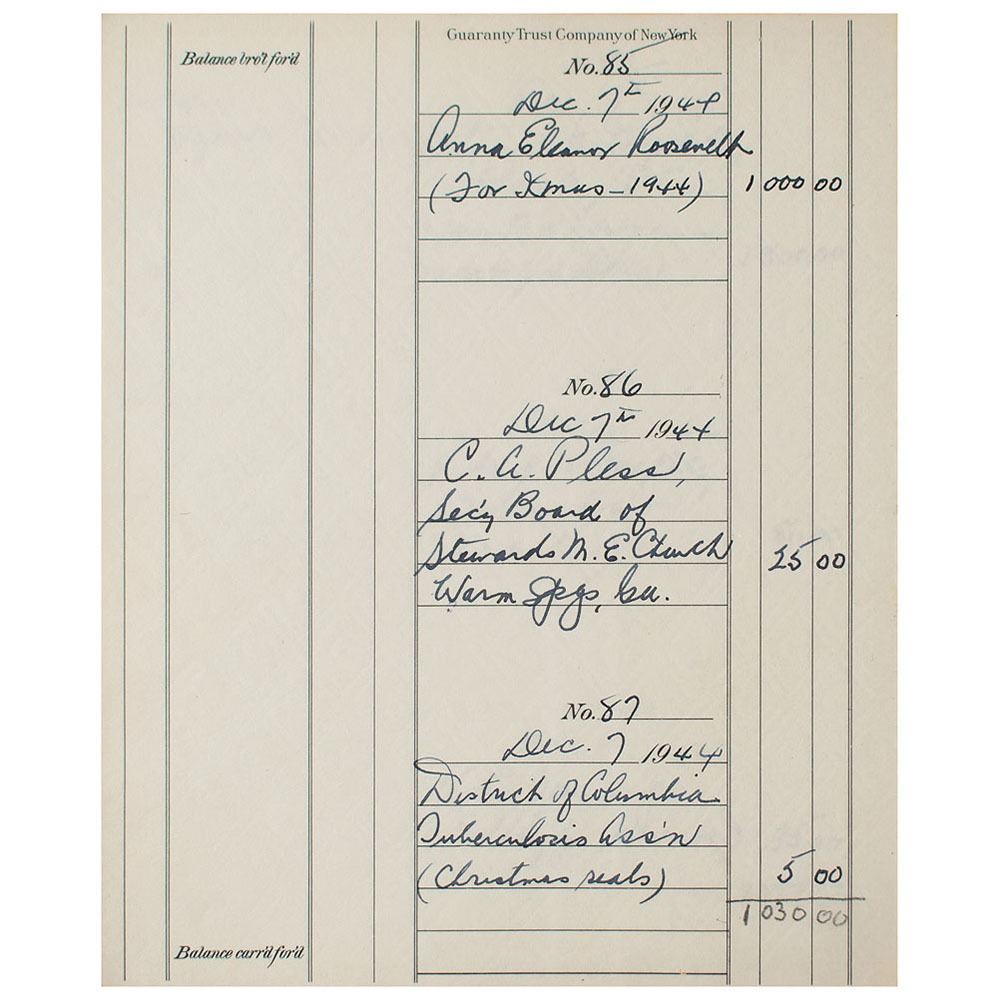 Guaranty Trust Company of New York
Balance bro't for'd
No. 85
Dec. 7th 1944
Anna Eleanor Roosevelt
(For Xmas - 1944) 1 000 00
No. 86
Dec 7th 1944
C. A. Pless,
Sec'y Board of
Stewards M. E. Church 25 00
Warm Spgs, Ga.
No. 87
Dec. 7 1944
District of Columbia
Tuberculosis Ass'n
(Christmas seals) 5 00
1 030 00
Balance carr'd for'd